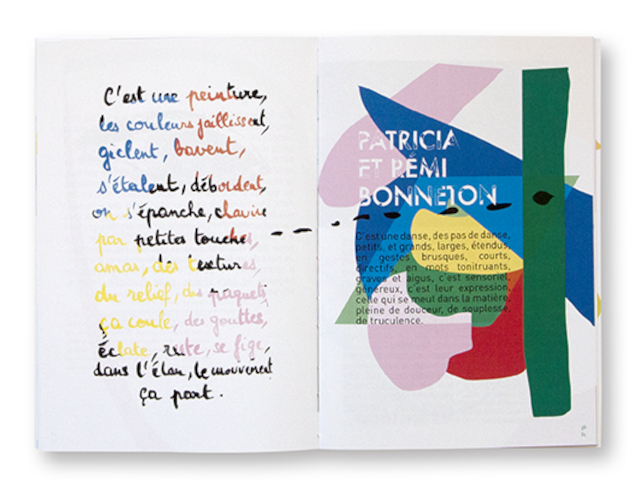 C'est une peinture,
les couleurs jaillissent,
giclent, bavent,
s'étalent, débordent,
on s'épanche, chavire
par petites touches,
amas, des textures,
du relief, des paquets,
ça coule, des gouttes,
éclate, reste, se fige,
dans l'élan, le mouvement
ça part.
PATRICIA
ET RÉMI
BONNETON
C'est une danse, des pas de danse,
petits, et grands, larges, étendus,
en gestes brusques, courts,
directifs, en mots tonitruants,
graves et aigus, c'est sensoriel,
généreux, c'est leur expression,
celle qui se meut dans la matière,
pleine de douceur, de souplesse,
de truculence.